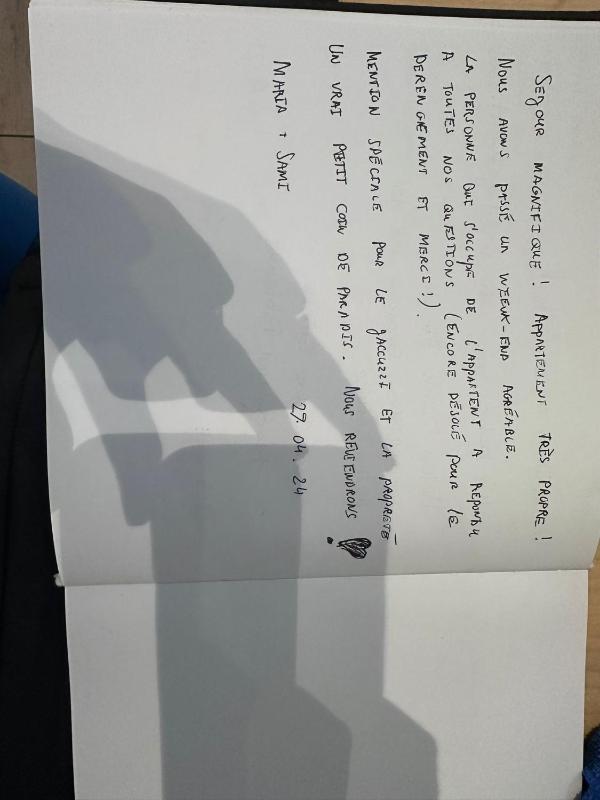 Séjour MAGNIFIQUE ! APPARTEMENT TRÈS PROPRE !
NOUS AVONS PASSÉ UN WEEUK-END AGRÉABLE.
LA PERSONNE QUI S'OCCUPE DE L'APPARTENT A REPONDU
A TOUTES NOS QUESTIONS (ENCORE DÉSOLÉ POUR LE
DERENGEMENT ET MERCI !).
MENTION SPÉCIALE POUR LE JACCUZZI ET LA PROPRETÉ
UN VRAI PETIT COIN DE PARADIS. NOUS REVIENDRONS !
MARIA + SAMI 27.04.24